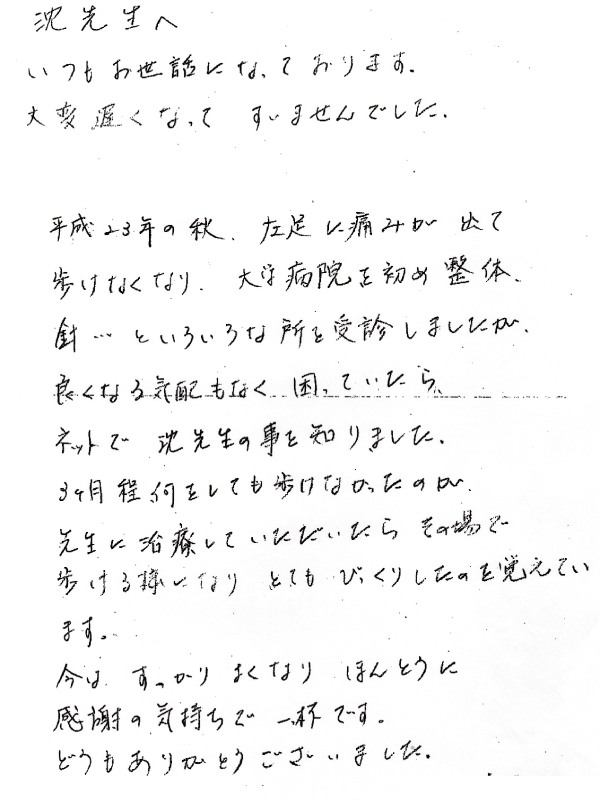 沈先生へ
いつもお世話になっております。
大変遅くなって すいませんでした。
平成23年の秋、左足に痛みが出て
歩けなくなり、大学病院を初め整体、
針…といろいろな所を受診しましたが、
良くなる気配もなく困っていたら、
ネットで 沈先生の事を知りました。
3ヶ月程何をしても歩けなかったのが、
先生に治療していただいたら その場で
歩ける様になり とても びっくりしたのを覚えてい
ます。
今は すっかり よくなり ほんとうに
感謝の気持ちで 一杯です。
どうもありがとうございました。